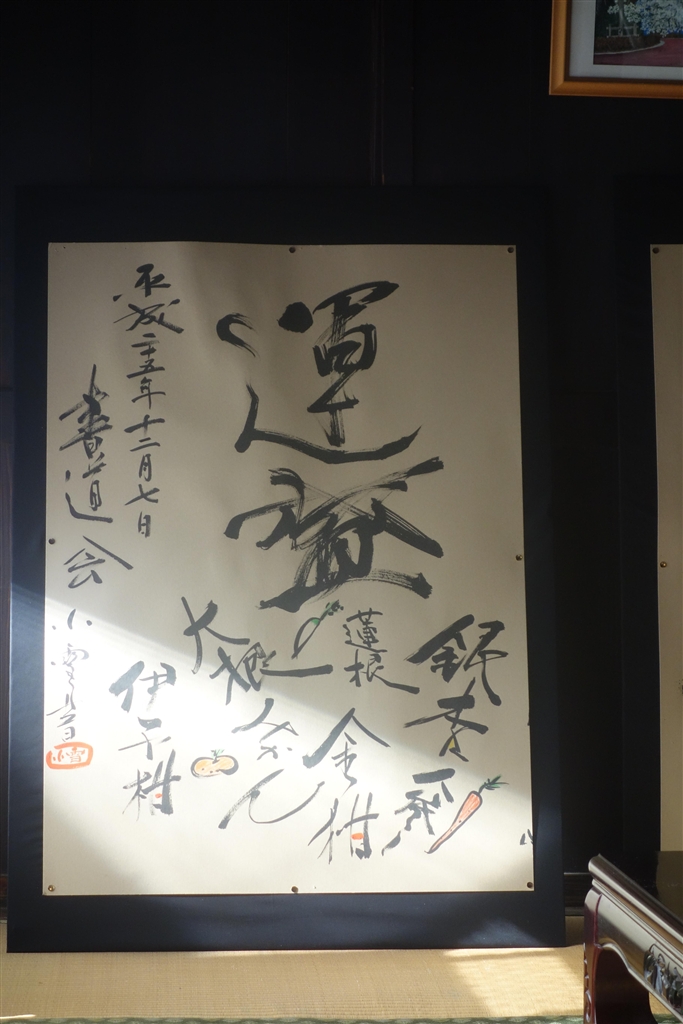 運盛
銀杏
人参
蓮根
金柑
大根
伊予柑
平成二五年十二月七日
書道会